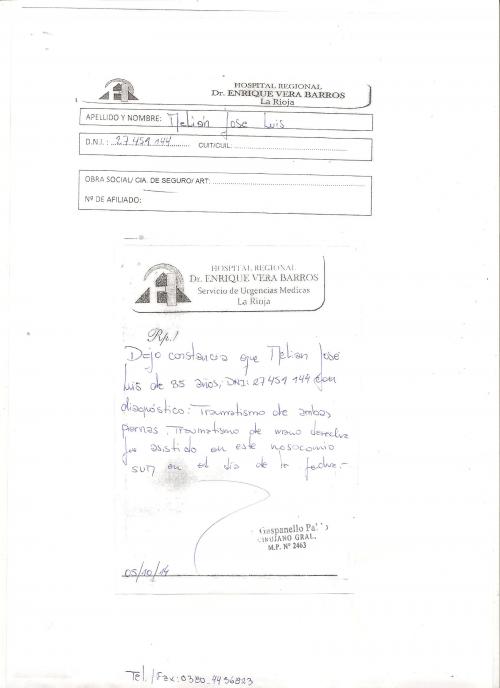 HOSPITAL REGIONAL
Dr. ENRIQUE VERA BARROS
La Rioja
APELLIDO Y NOMBRE: Melián Jose Luis
D.N.I. : 27 459 144 CUIT/CUIL:
OBRA SOCIAL/ CIA. DE SEGURO/ ART:
Nº DE AFILIADO:
HOSPITAL REGIONAL
Dr. ENRIQUE VERA BARROS
Servicio de Urgencias Medicas
La Rioja
Rp./
Dejo constancia que Melian José
Luis de 35 años, DNI: 27 459 144 con
diagnóstico: Traumatismo de ambas
piernas. Traumatismo de mano derecha
fue asistido en este nosocomio
en el día de la fecha.-
Gaspanello
CIRUJANO GRAL.
M.P. Nº 2463
05/10/14
Tel./Fax: 0380_4456823